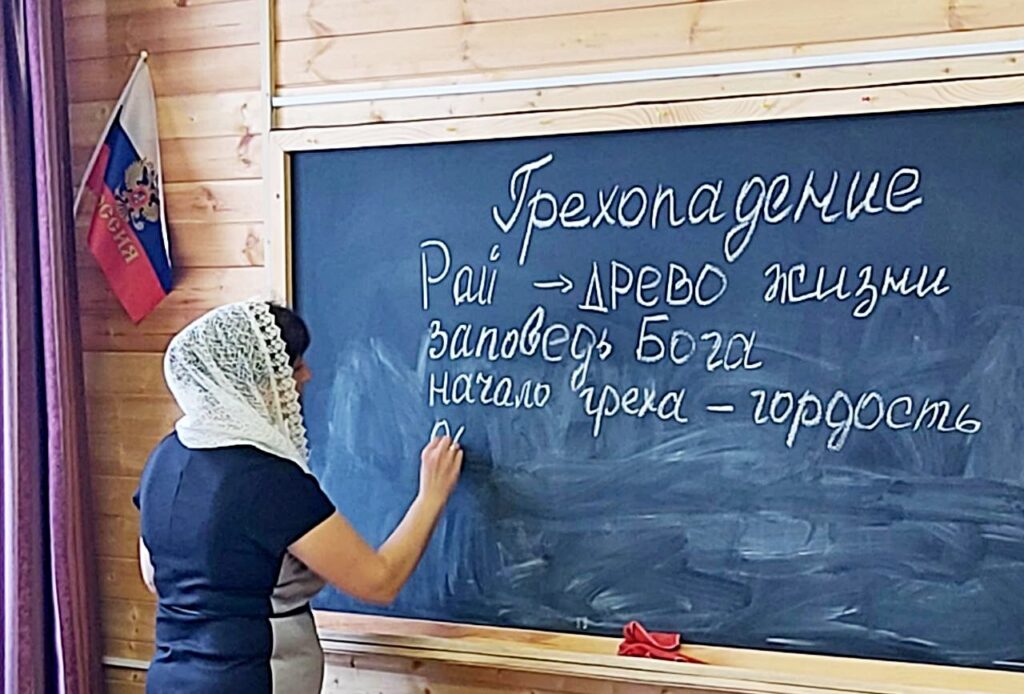 РОССИЯ
Грехопадение
Рай → древо жизни
заповедь Бога
начало греха – гордость